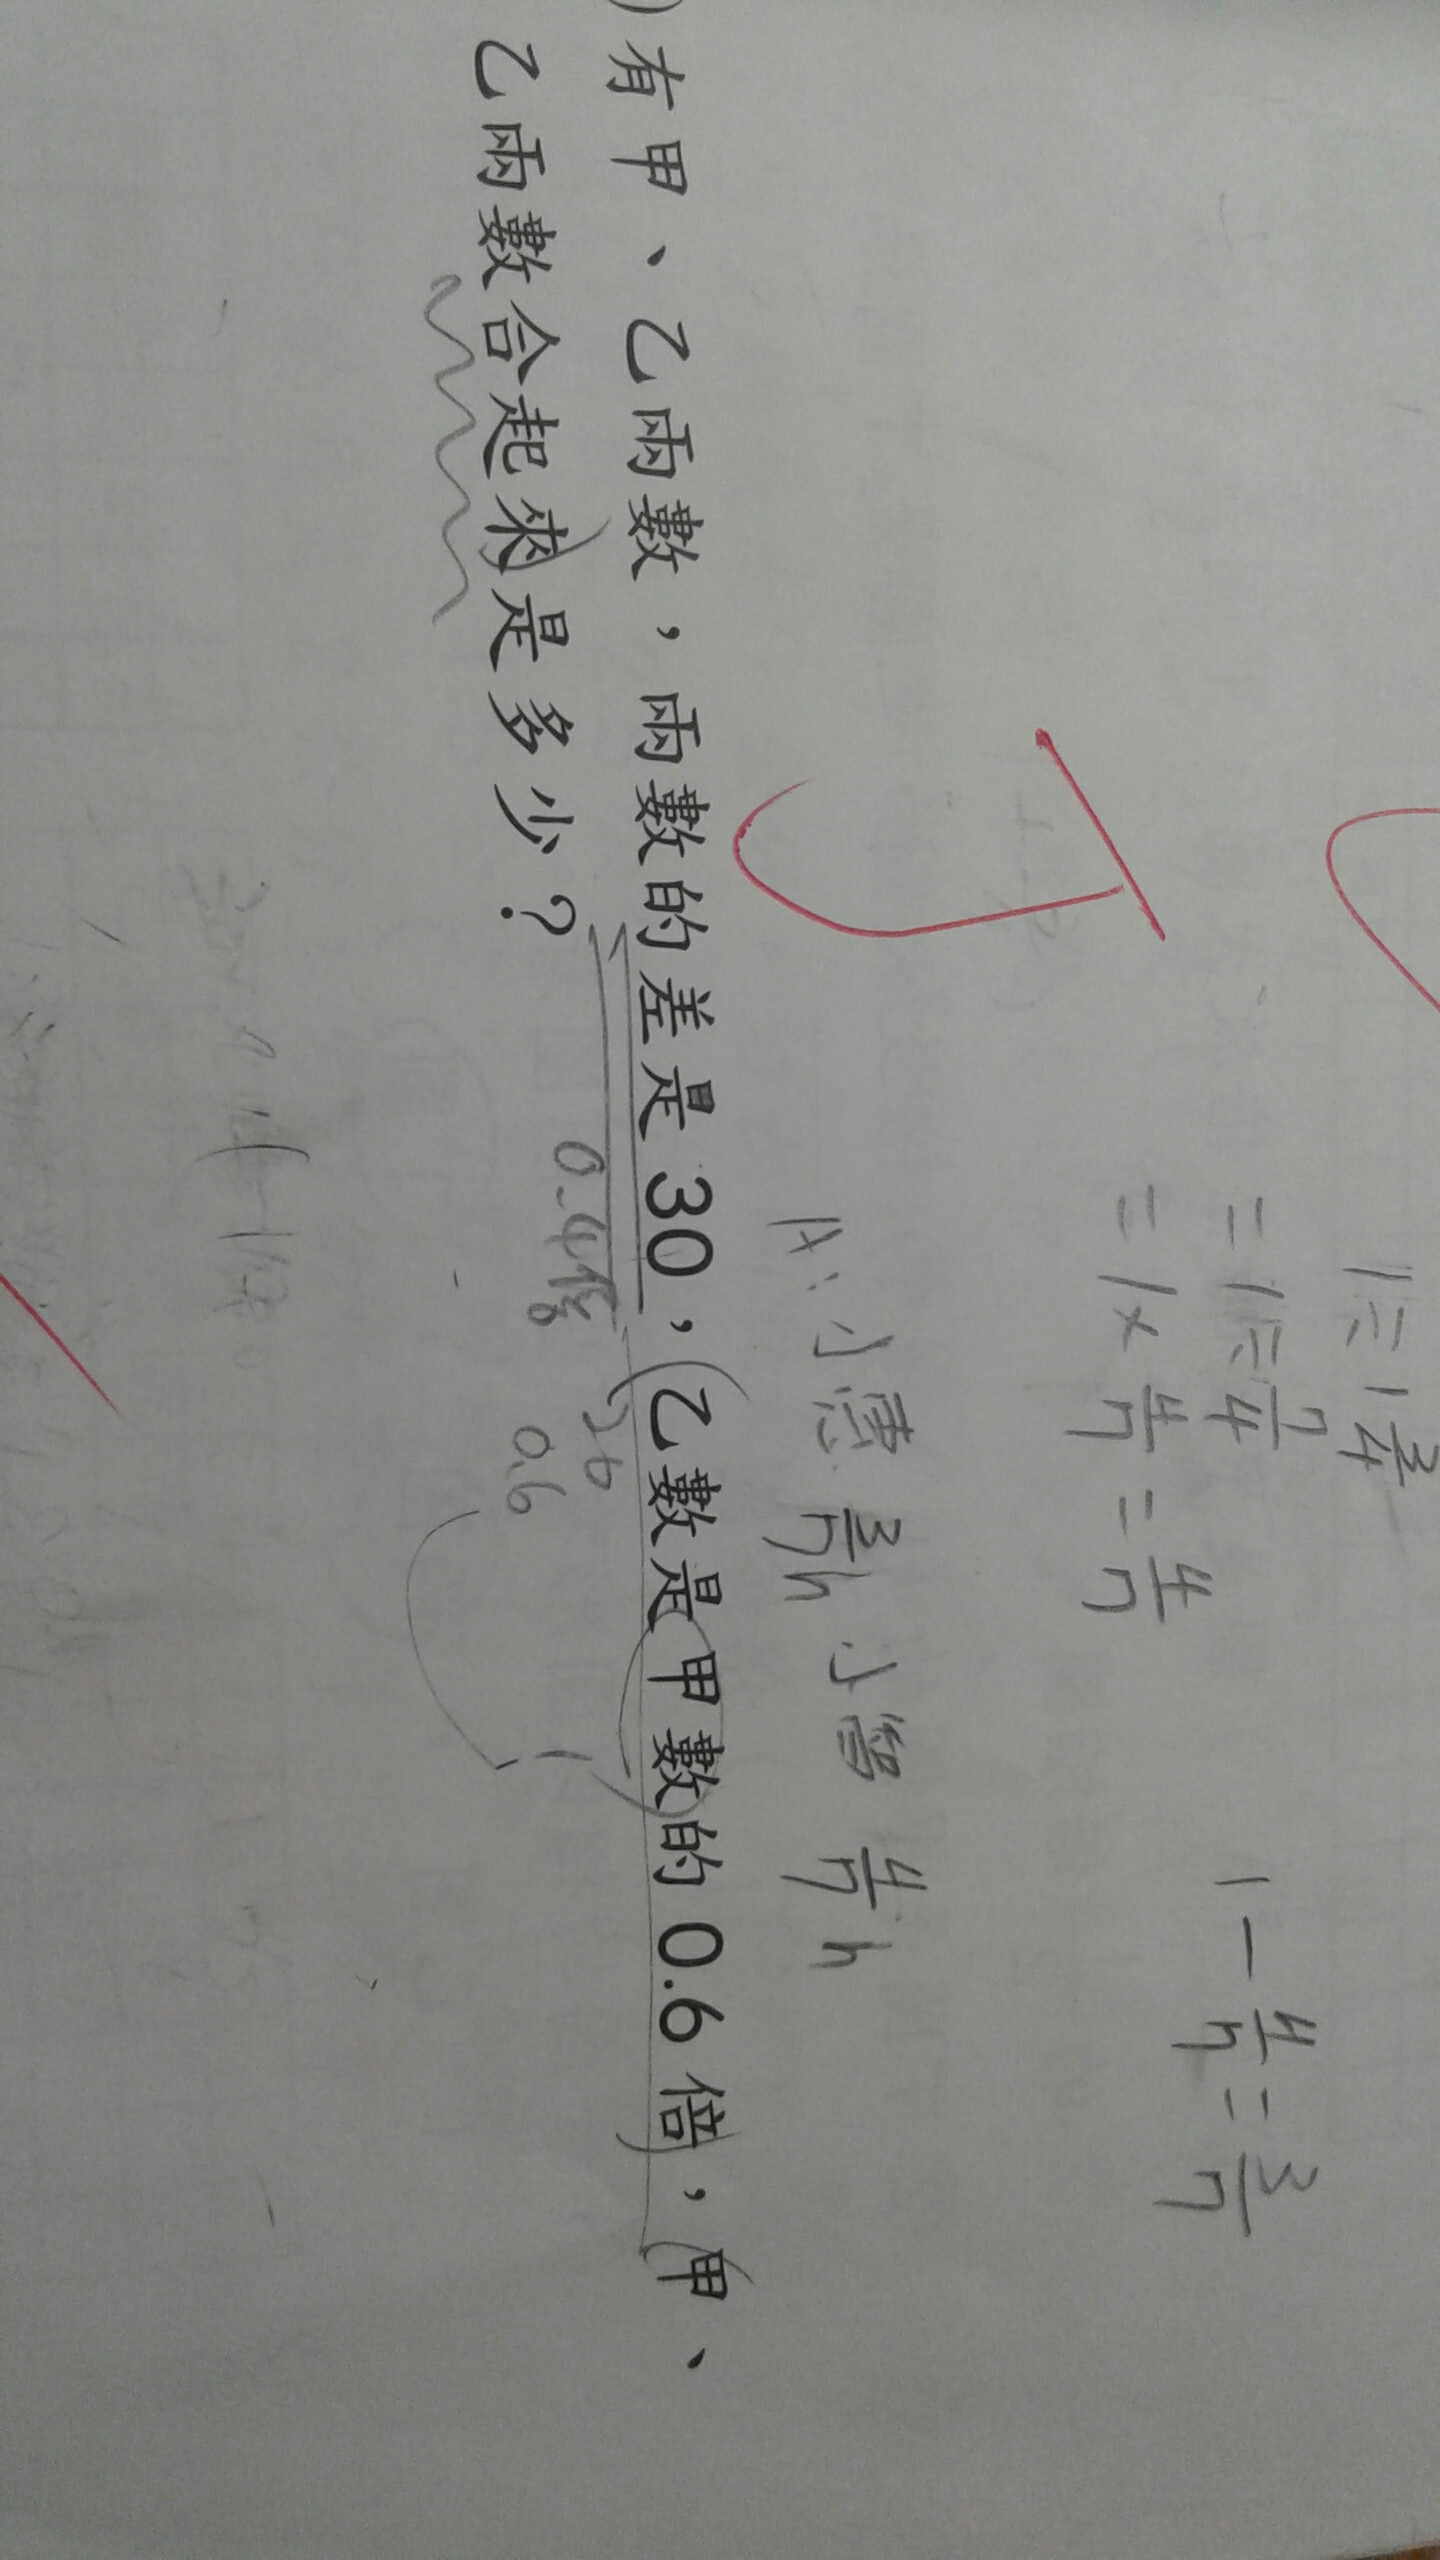 1÷1 3/4
=1÷7/4
=1×4/7=4/7
1-4/7=3/7
A:小慧3/7h 小智4/7h
)有甲、乙兩數,兩數的差是30,乙數是甲數的0.6倍,甲、
0.4倍
0.6
乙兩數合起來是多少?